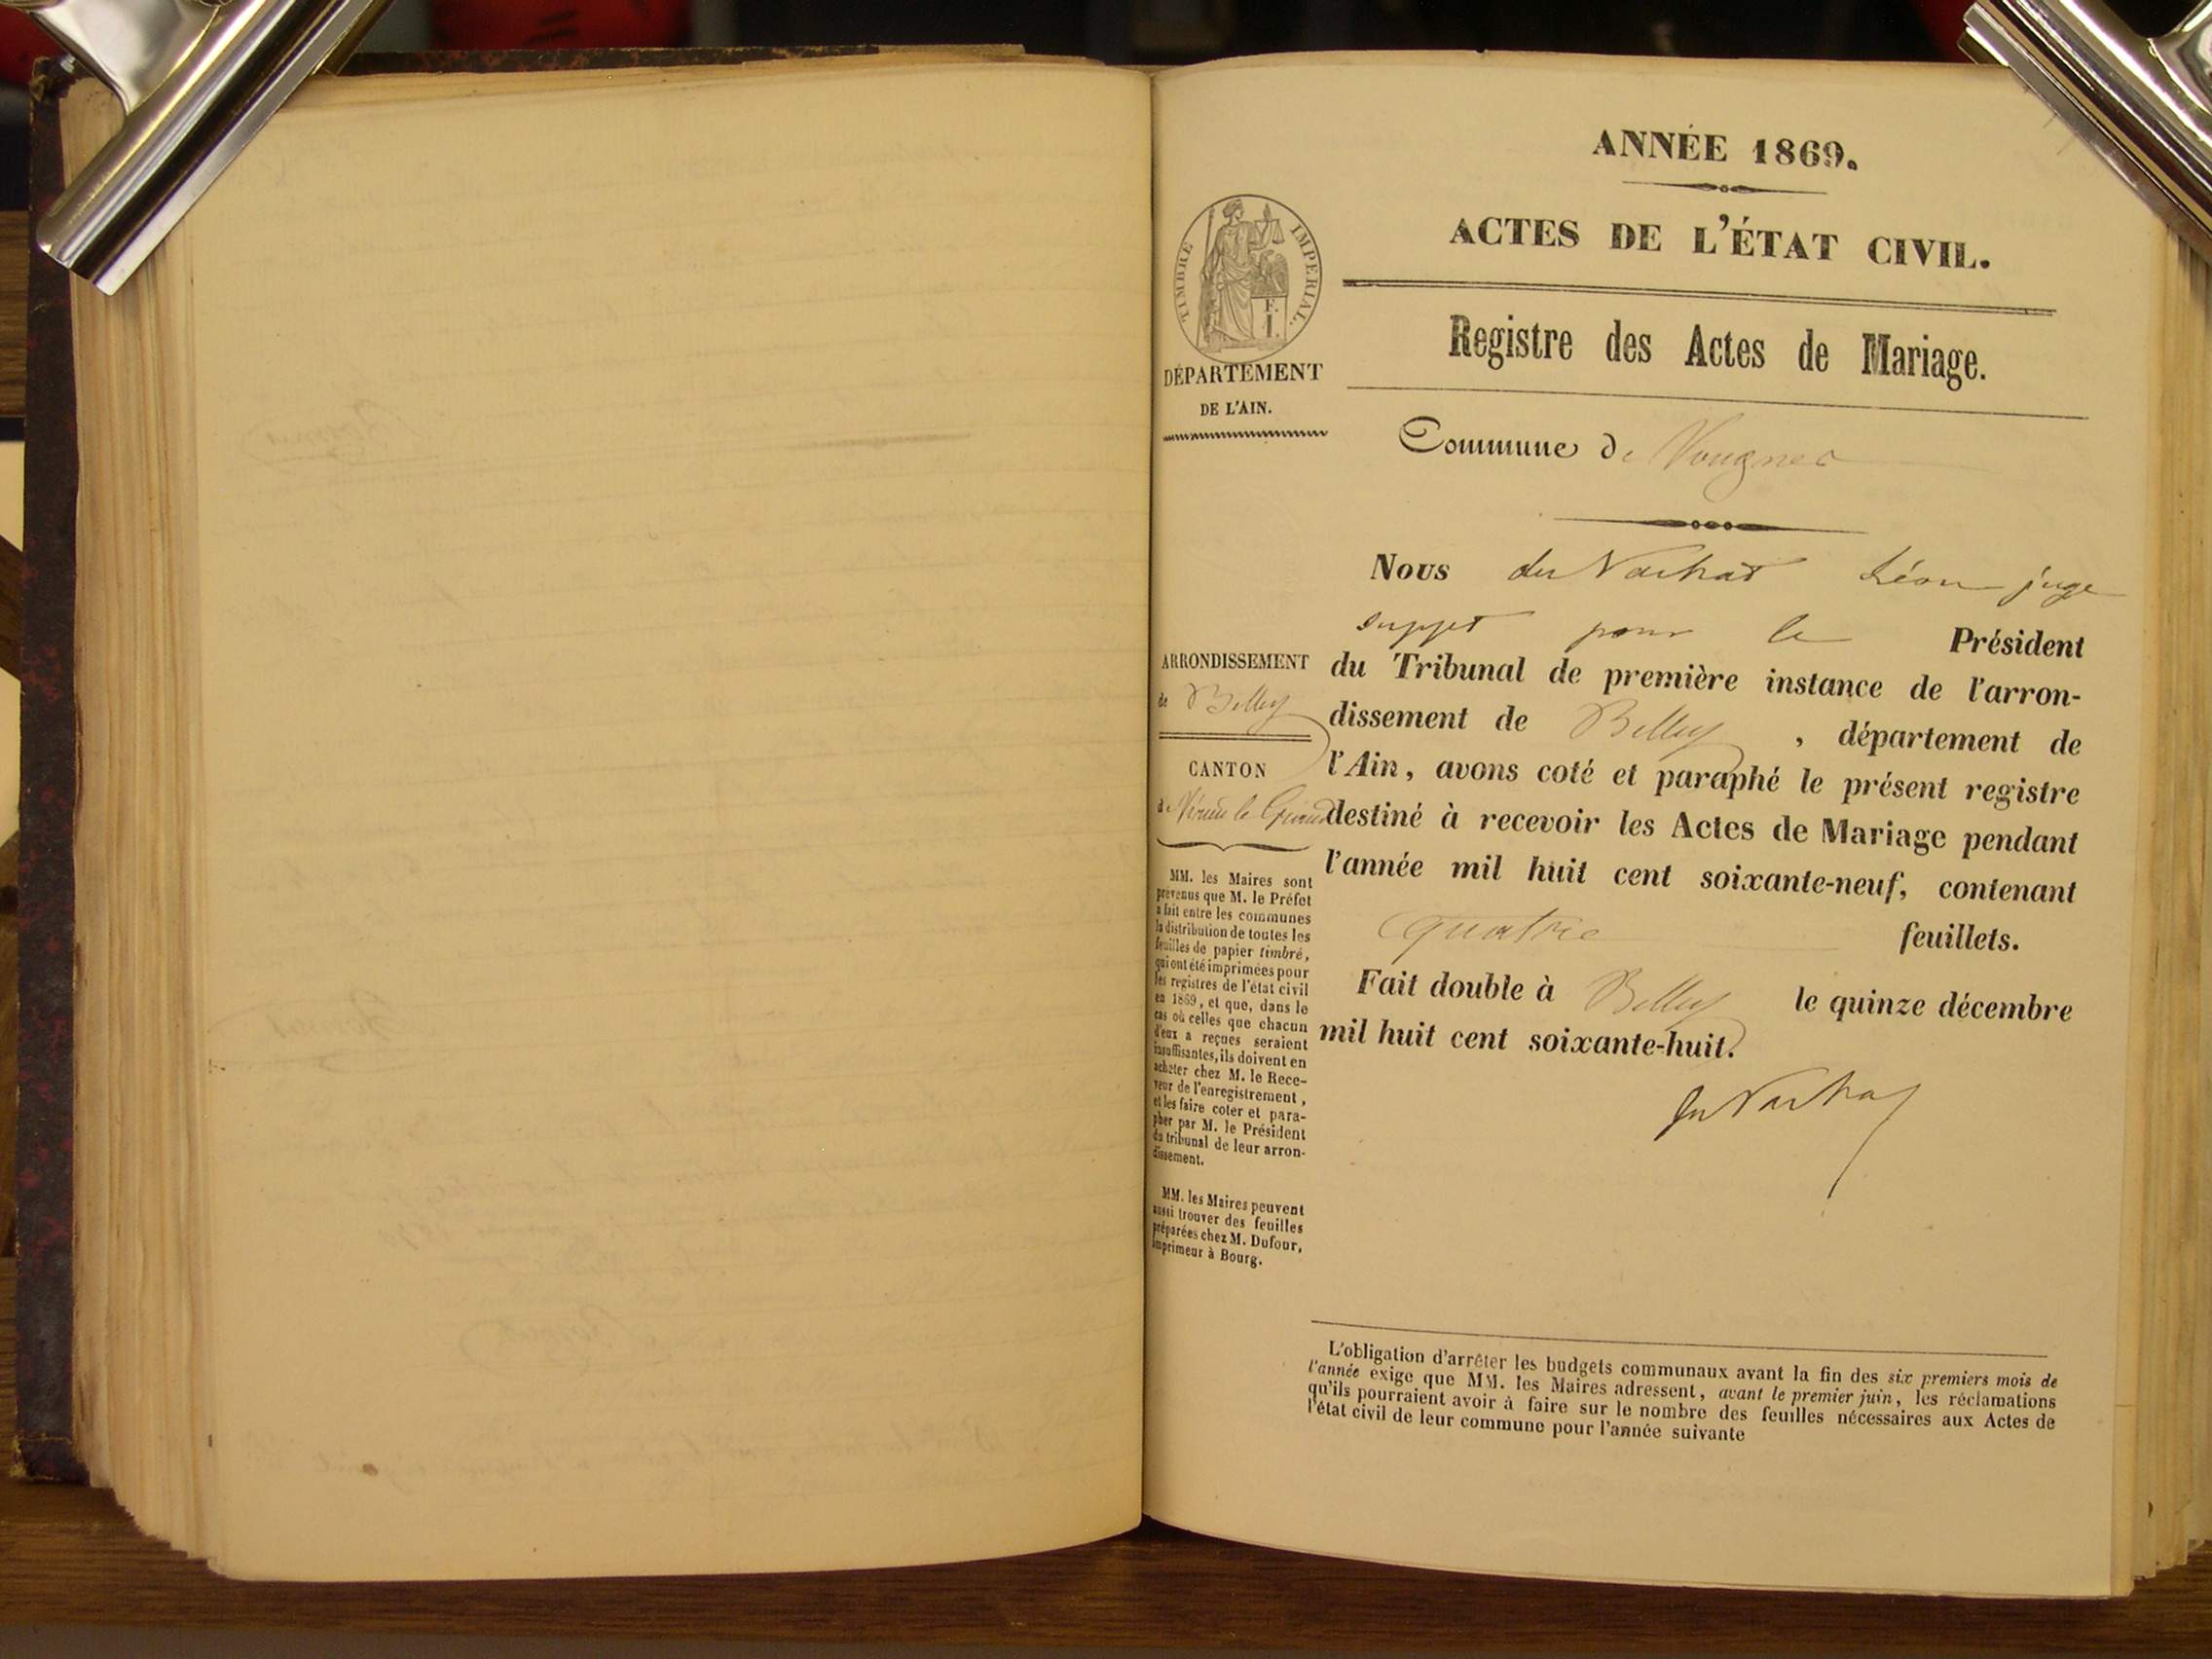 ANNÉE 1869.
ACTES DE L'ÉTAT CIVIL.
Registre des Actes de Mariage.
TIMBRE IMPERIAL.
F.
1.
DÉPARTEMENT
DE L'AIN.
Commune de Vougnes
Nous du Vachat Léon juge
supp^t pour le Président
du Tribunal de première instance de l'arron-
dissement de Belley, département de
l'Ain, avons coté et paraphé le présent registre
destiné à recevoir les Actes de Mariage pendant
l'année mil huit cent soixante-neuf, contenant
quatre feuillets.
Fait double à Belley le quinze décembre
mil huit cent soixante-huit.
du Vachat
ARRONDISSEMENT
de Belley
CANTON
de Virieu le Grand
MM. les Maires sont
prévenus que M. le Préfet
a fait entre les communes
la distribution de toutes les
feuilles de papier timbré,
qui ont été imprimées pour
les registres de l'état civil
en 1869, et que, dans le
cas où celles que chacun
d'eux a reçues seraient
insuffisantes, ils doivent en
acheter chez M. le Rece-
veur de l'enregistrement,
et les faire coter et para-
pher par M. le Président
du tribunal de leur arron-
dissement.
MM. les Maires peuvent
aussi trouver des feuilles
préparées chez M. Dufour,
imprimeur à Bourg.
L'obligation d'arrêter les budgets communaux avant la fin des six premiers mois de
l'année exige que MM. les Maires adressent, avant le premier juin, les réclamations
qu'ils pourraient avoir à faire sur le nombre des feuilles nécessaires aux Actes de
l'état civil de leur commune pour l'année suivante